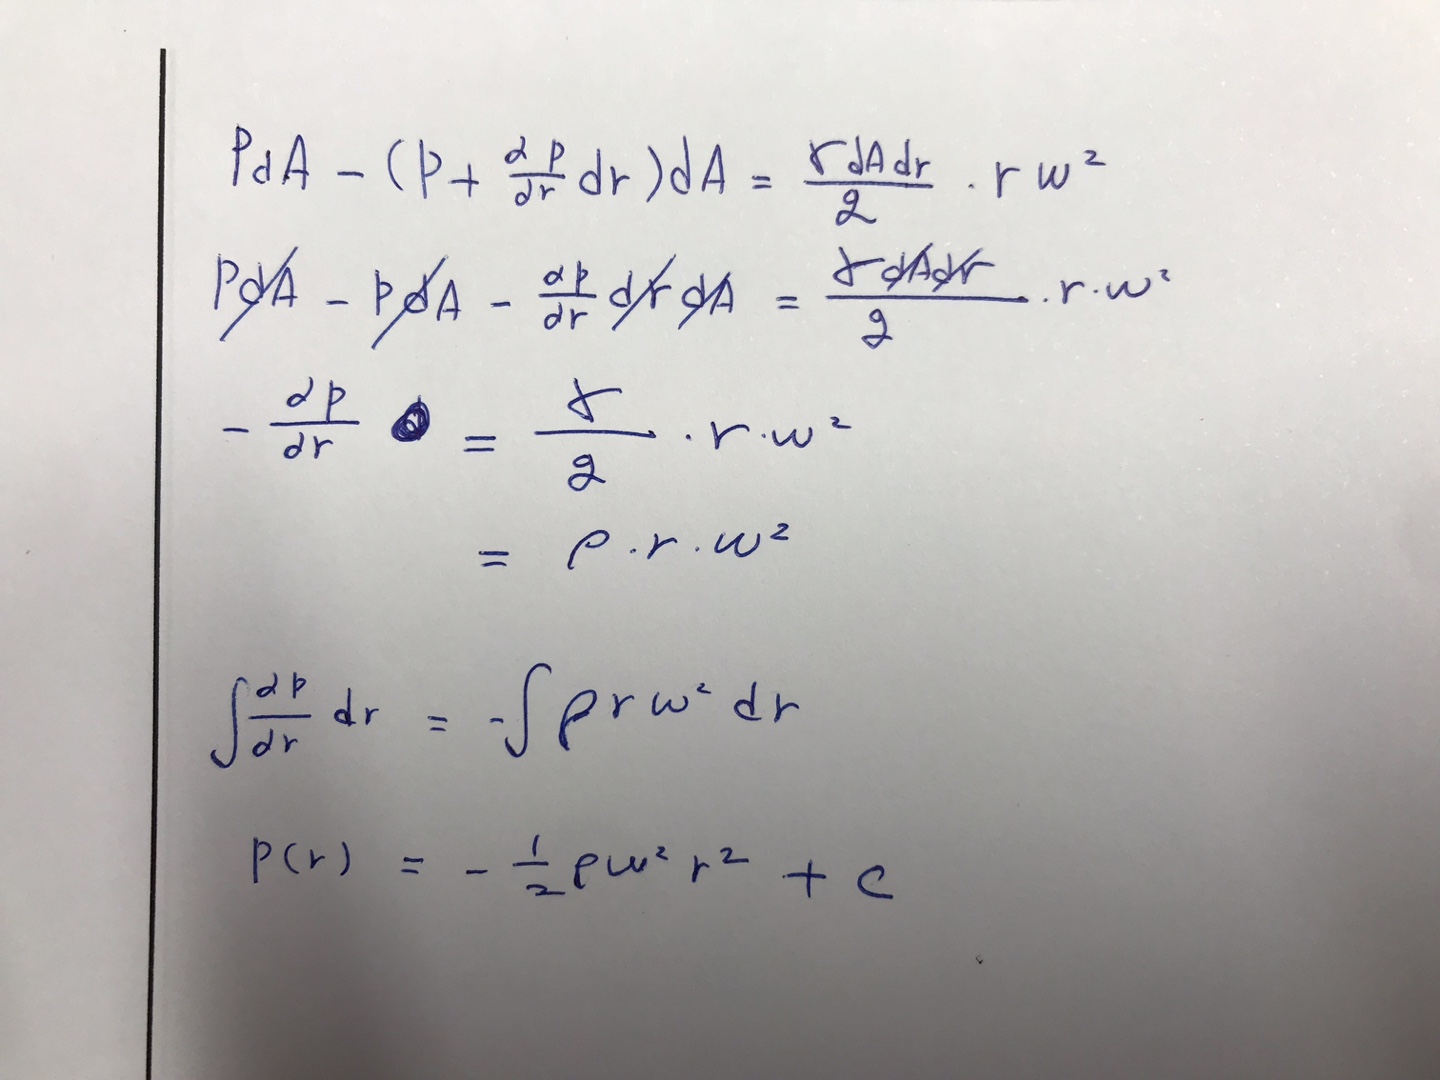 PdA - (P + ∂P/dr dr)dA = γdAdr/g · r w²
PdA - PdA - ∂P/dr dr dA = γdAdr/g · r · w²
- ∂P/dr = γ/g · r · w²
= ρ · r · w²
∫ ∂P/dr dr = -∫ ρ r w² dr
P(r) = - 1/2 ρ w² r² + C